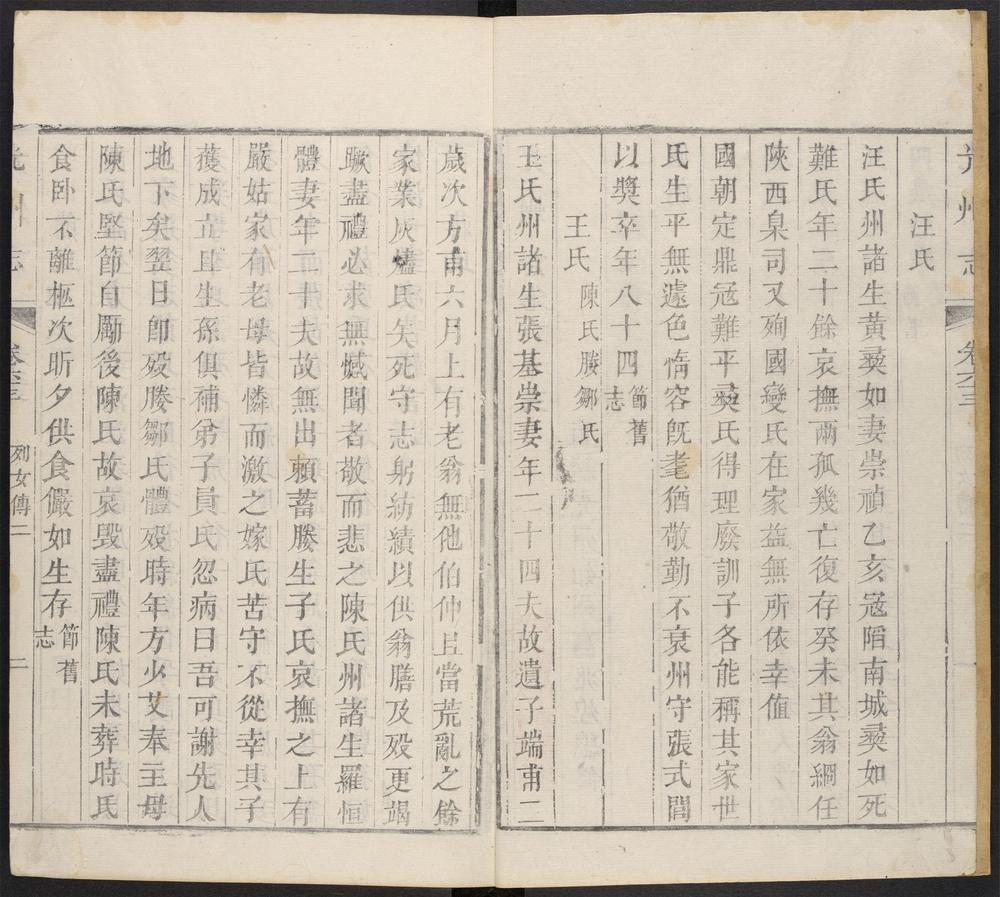 光州志 卷六三
汪氏
汪氏州諸生黃彝如妻崇禎乙亥冦陷南城彝如死
難氏年二十餘哀撫兩孤幾亡復存癸未其翁綱任
陝西臬司又殉國變氏在家益無所依幸值
國朝定鼎冦難平彝氏得理廢訓子各能稱其家世
氏生平無遽色惰容旣耄猶敬勤不衰州守張式閭
以獎卒年八十四節舊志
王氏 陳氏媵鄒氏
王氏州諸生張基崇妻年二十四夫故遺子端甫二
歲次方甫六月上有老翁無他伯仲且當荒亂之餘
家業灰燼氏矢死守志躬紡績以供翁膳及歿更竭
蹶盡禮必求無憾聞者敬而悲之陳氏州諸生羅恒
體妻年二十夫故無出賴蓄媵生子氏哀撫之上有
嚴姑家有老母皆憐而激之嫁氏苦守不從幸其子
獲成立且生孫俱補弟子員氏忽病曰吾可謝先人
地下矣翌日卽歿媵鄒氏體歿時年方少艾奉主母
陳氏堅節自勵後陳氏故哀毀盡禮陳氏未葬時氏
食卧不離柩次昕夕供食儼如生存節舊志
光州志 卷六三 列女傳二 二